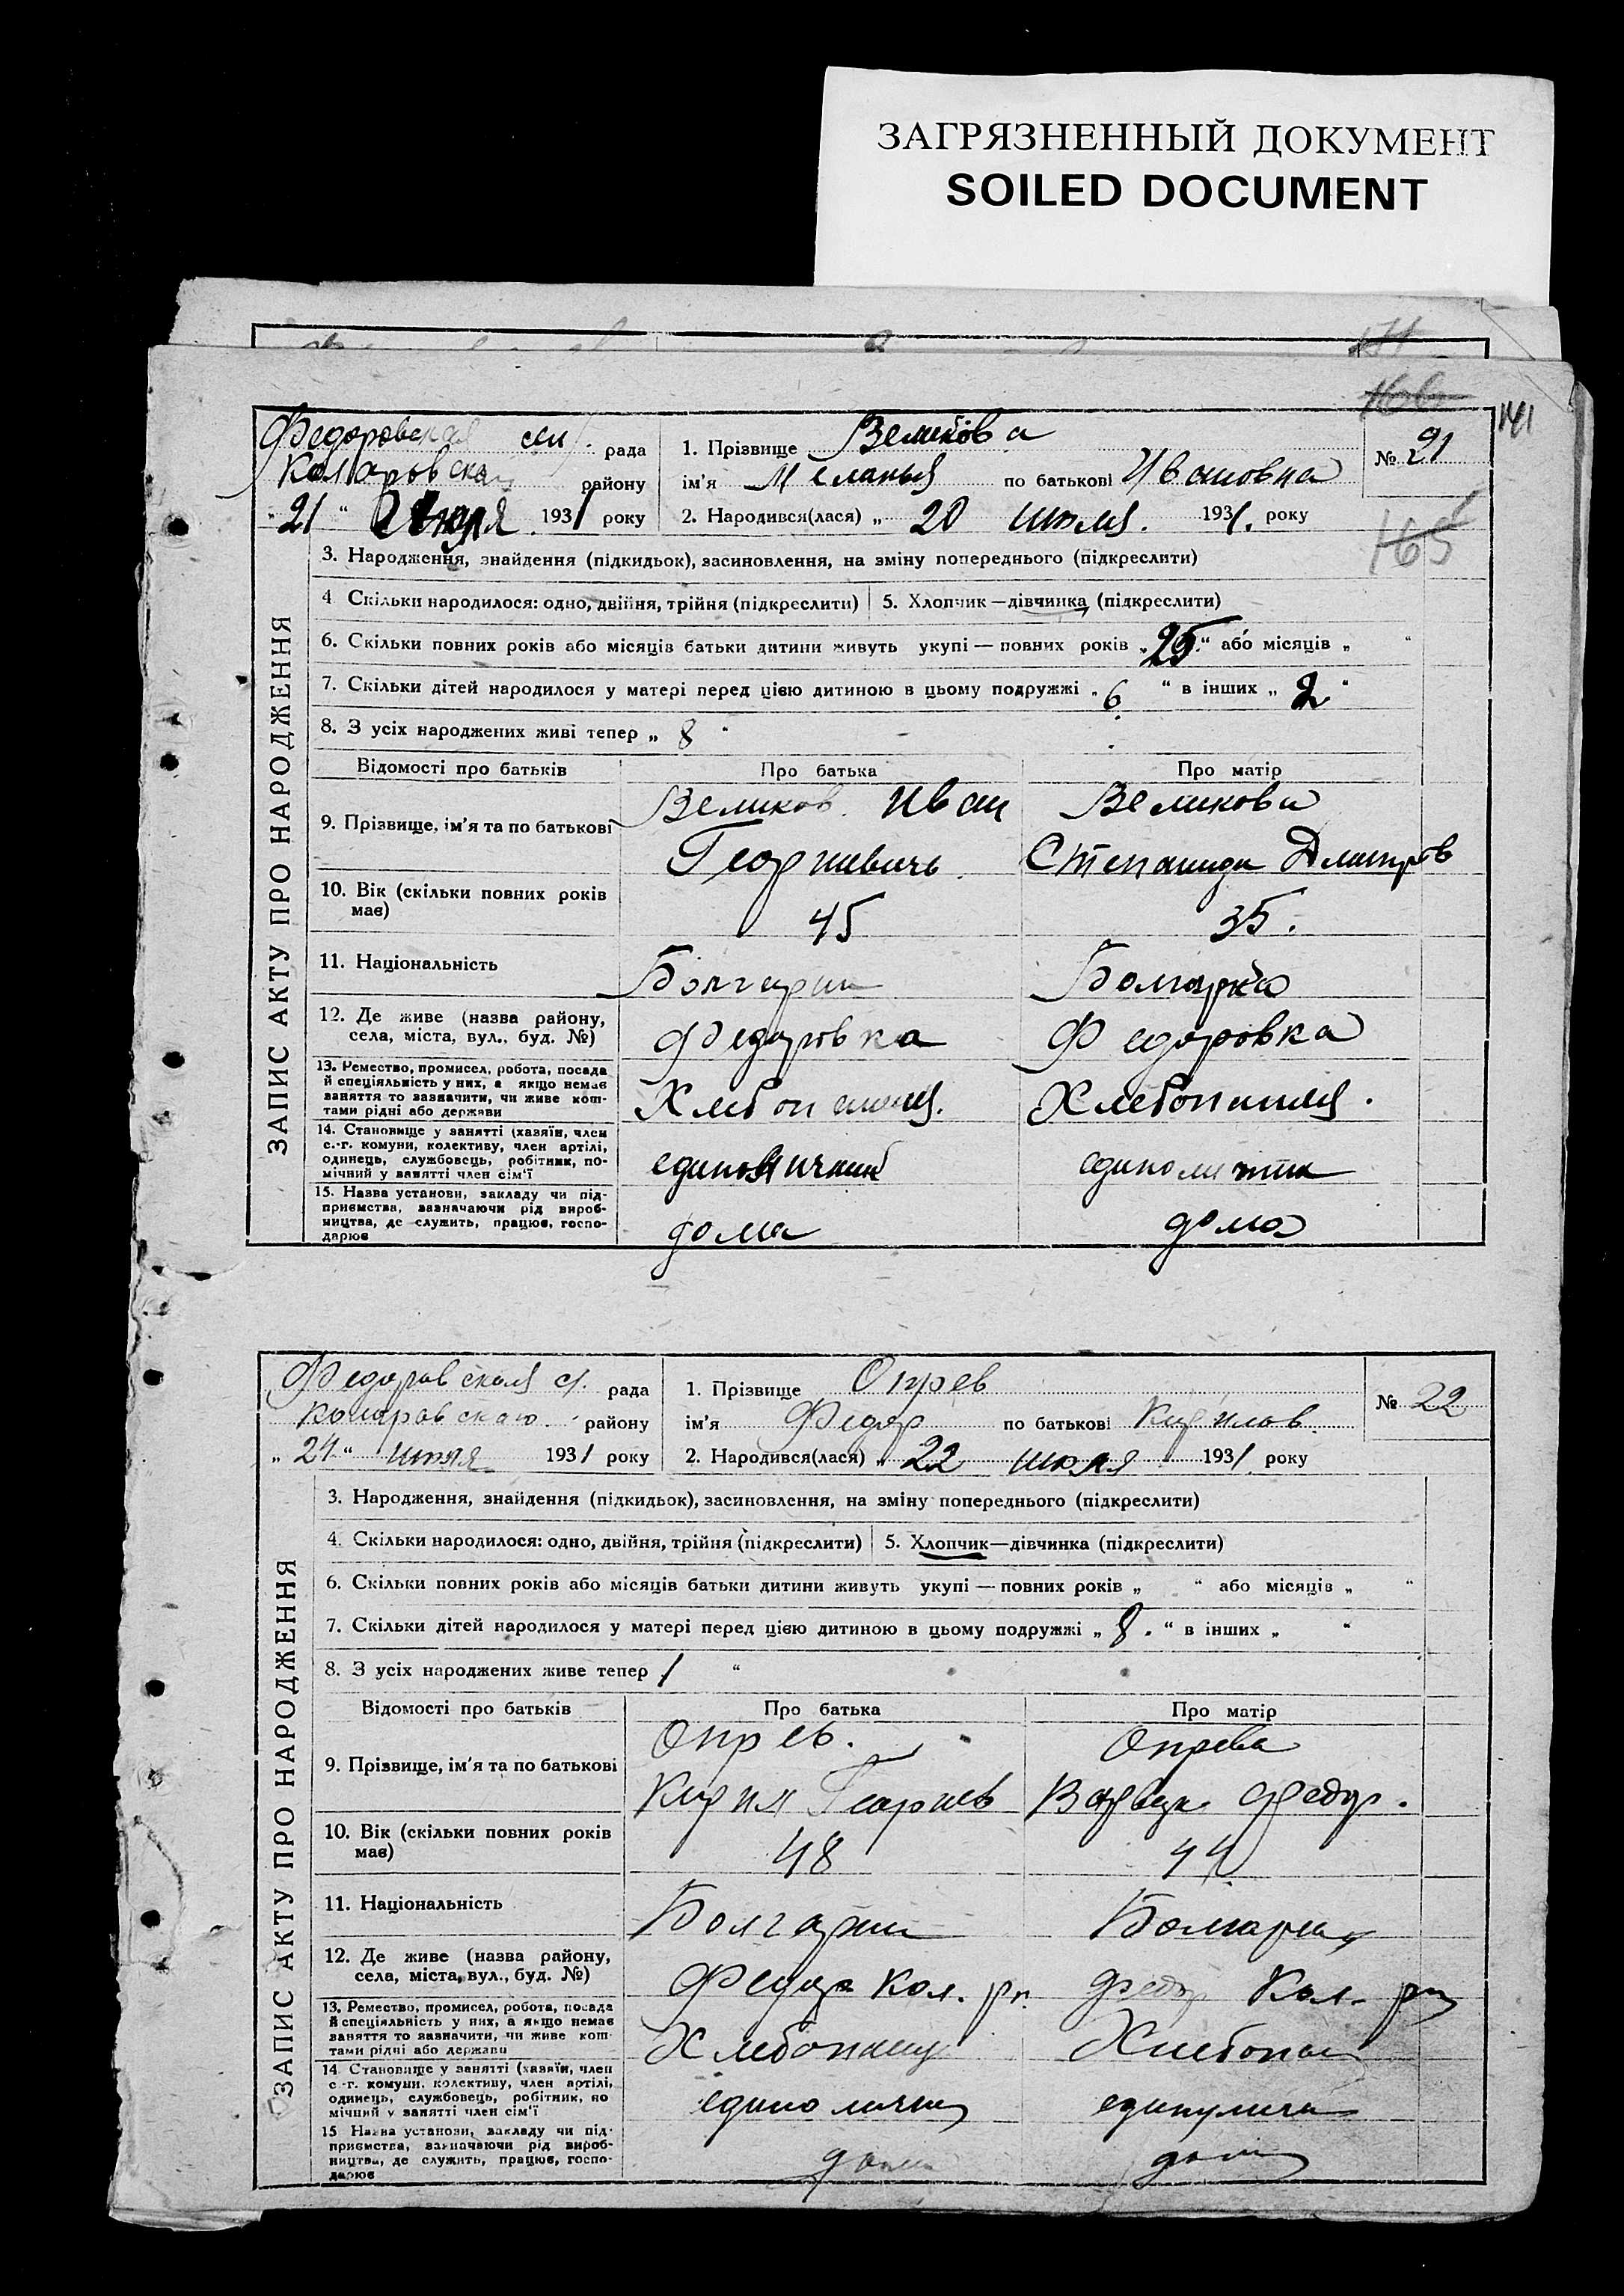 ЗАГРЯЗНЕННЫЙ ДОКУМЕНТ
SOILED DOCUMENT
141
165
Федоровская сел. рада
Коларовская району
"21" Июля 1931 року
1. Прізвище Великова
ім'я Меланья по батькові Ивановна
2. Народився(лася) „20 июля. 1931. року
№ 21
ЗАПИС АКТУ ПРО НАРОДЖЕННЯ
3. Народження, знайдення (підкидьок), засиновлення, на зміну попереднього (підкреслити)
4 Скільки народилося: одно, двійня, трійня (підкреслити) 5. Хлопчик—дівчинка (підкреслити)
6. Скільки повних років або місяців батьки дитини живуть укупі — повних років „25" або місяців „ "
7. Скільки дітей народилося у матері перед цією дитиною в цьому подружжі „6 " в інших „2"
8. З усіх народжених живі тепер „8 "
Відомості про батьків Про батька Про матір
9. Прізвище, ім'я та по батькові
Великов. Иван Великова
Георгиевичь. Степанида Дмитров
10. Вік (скільки повних років має) 45 35.
11. Національність Болгарин Болгарка
12. Де живе (назва району, села, міста, вул., буд. №) Федоровка Федоровка
13. Ремество, промисел, робота, посада
й спеціяльність у них, а якщо немає
заняття то зазначити, чи живе кош-
тами рідні або держави
14. Становище у занятті (хазяїн, член
с.-г. комуни, колективу, член артілі,
одинець, службовець, робітник, по-
мічний у занятті член сім'ї
15. Назва установи, закладу чи під-
приємства, зазначаючи рід вироб-
ництва, де служить, працює, госпо-
дарює
дома дома
Федоровская с. рада
Коларовскаю. району
„24" июля 1931 року
1. Прізвище Опрев
ім'я Федор по батькові Кирилов.
2. Народився(лася) „22 июля 1931. року
№ 22
ЗАПИС АКТУ ПРО НАРОДЖЕННЯ
3. Народження, знайдення (підкидьок), засиновлення, на зміну попереднього (підкреслити)
4. Скільки народилося: одно, двійня, трійня (підкреслити) 5. Хлопчик—дівчинка (підкреслити)
6. Скільки повних років або місяців батьки дитини живуть укупі — повних років „ " або місяців „ "
7. Скільки дітей народилося у матері перед цією дитиною в цьому подружжі „8." в інших „ "
8. З усіх народжених живе тепер 1 "
Відомості про батьків Про батька Про матір
9. Прізвище, ім'я та по батькові
Опрев. Опрева
Георгиев Федор.
10. Вік (скільки повних років має) 48 44
11. Національність Болгарин Болгарка
12. Де живе (назва району, села, міста, вул., буд. №) Кол. рн. Кол. рн
13. Ремество, промисел, робота, посада
й спеціяльність у них, а якщо немає
заняття то зазначити, чи живе кош-
тами рідні або держави
14 Становище у занятті (хазяїн, член
с.-г. комуни, колективу, член артілі,
одинець, службовець, робітник, по
мічний у занятті член сім'ї
15 Назва установи, закладу чи під-
приємства, зазначаючи рід вироб-
ництва, де служить, працює, госпо-
дарює